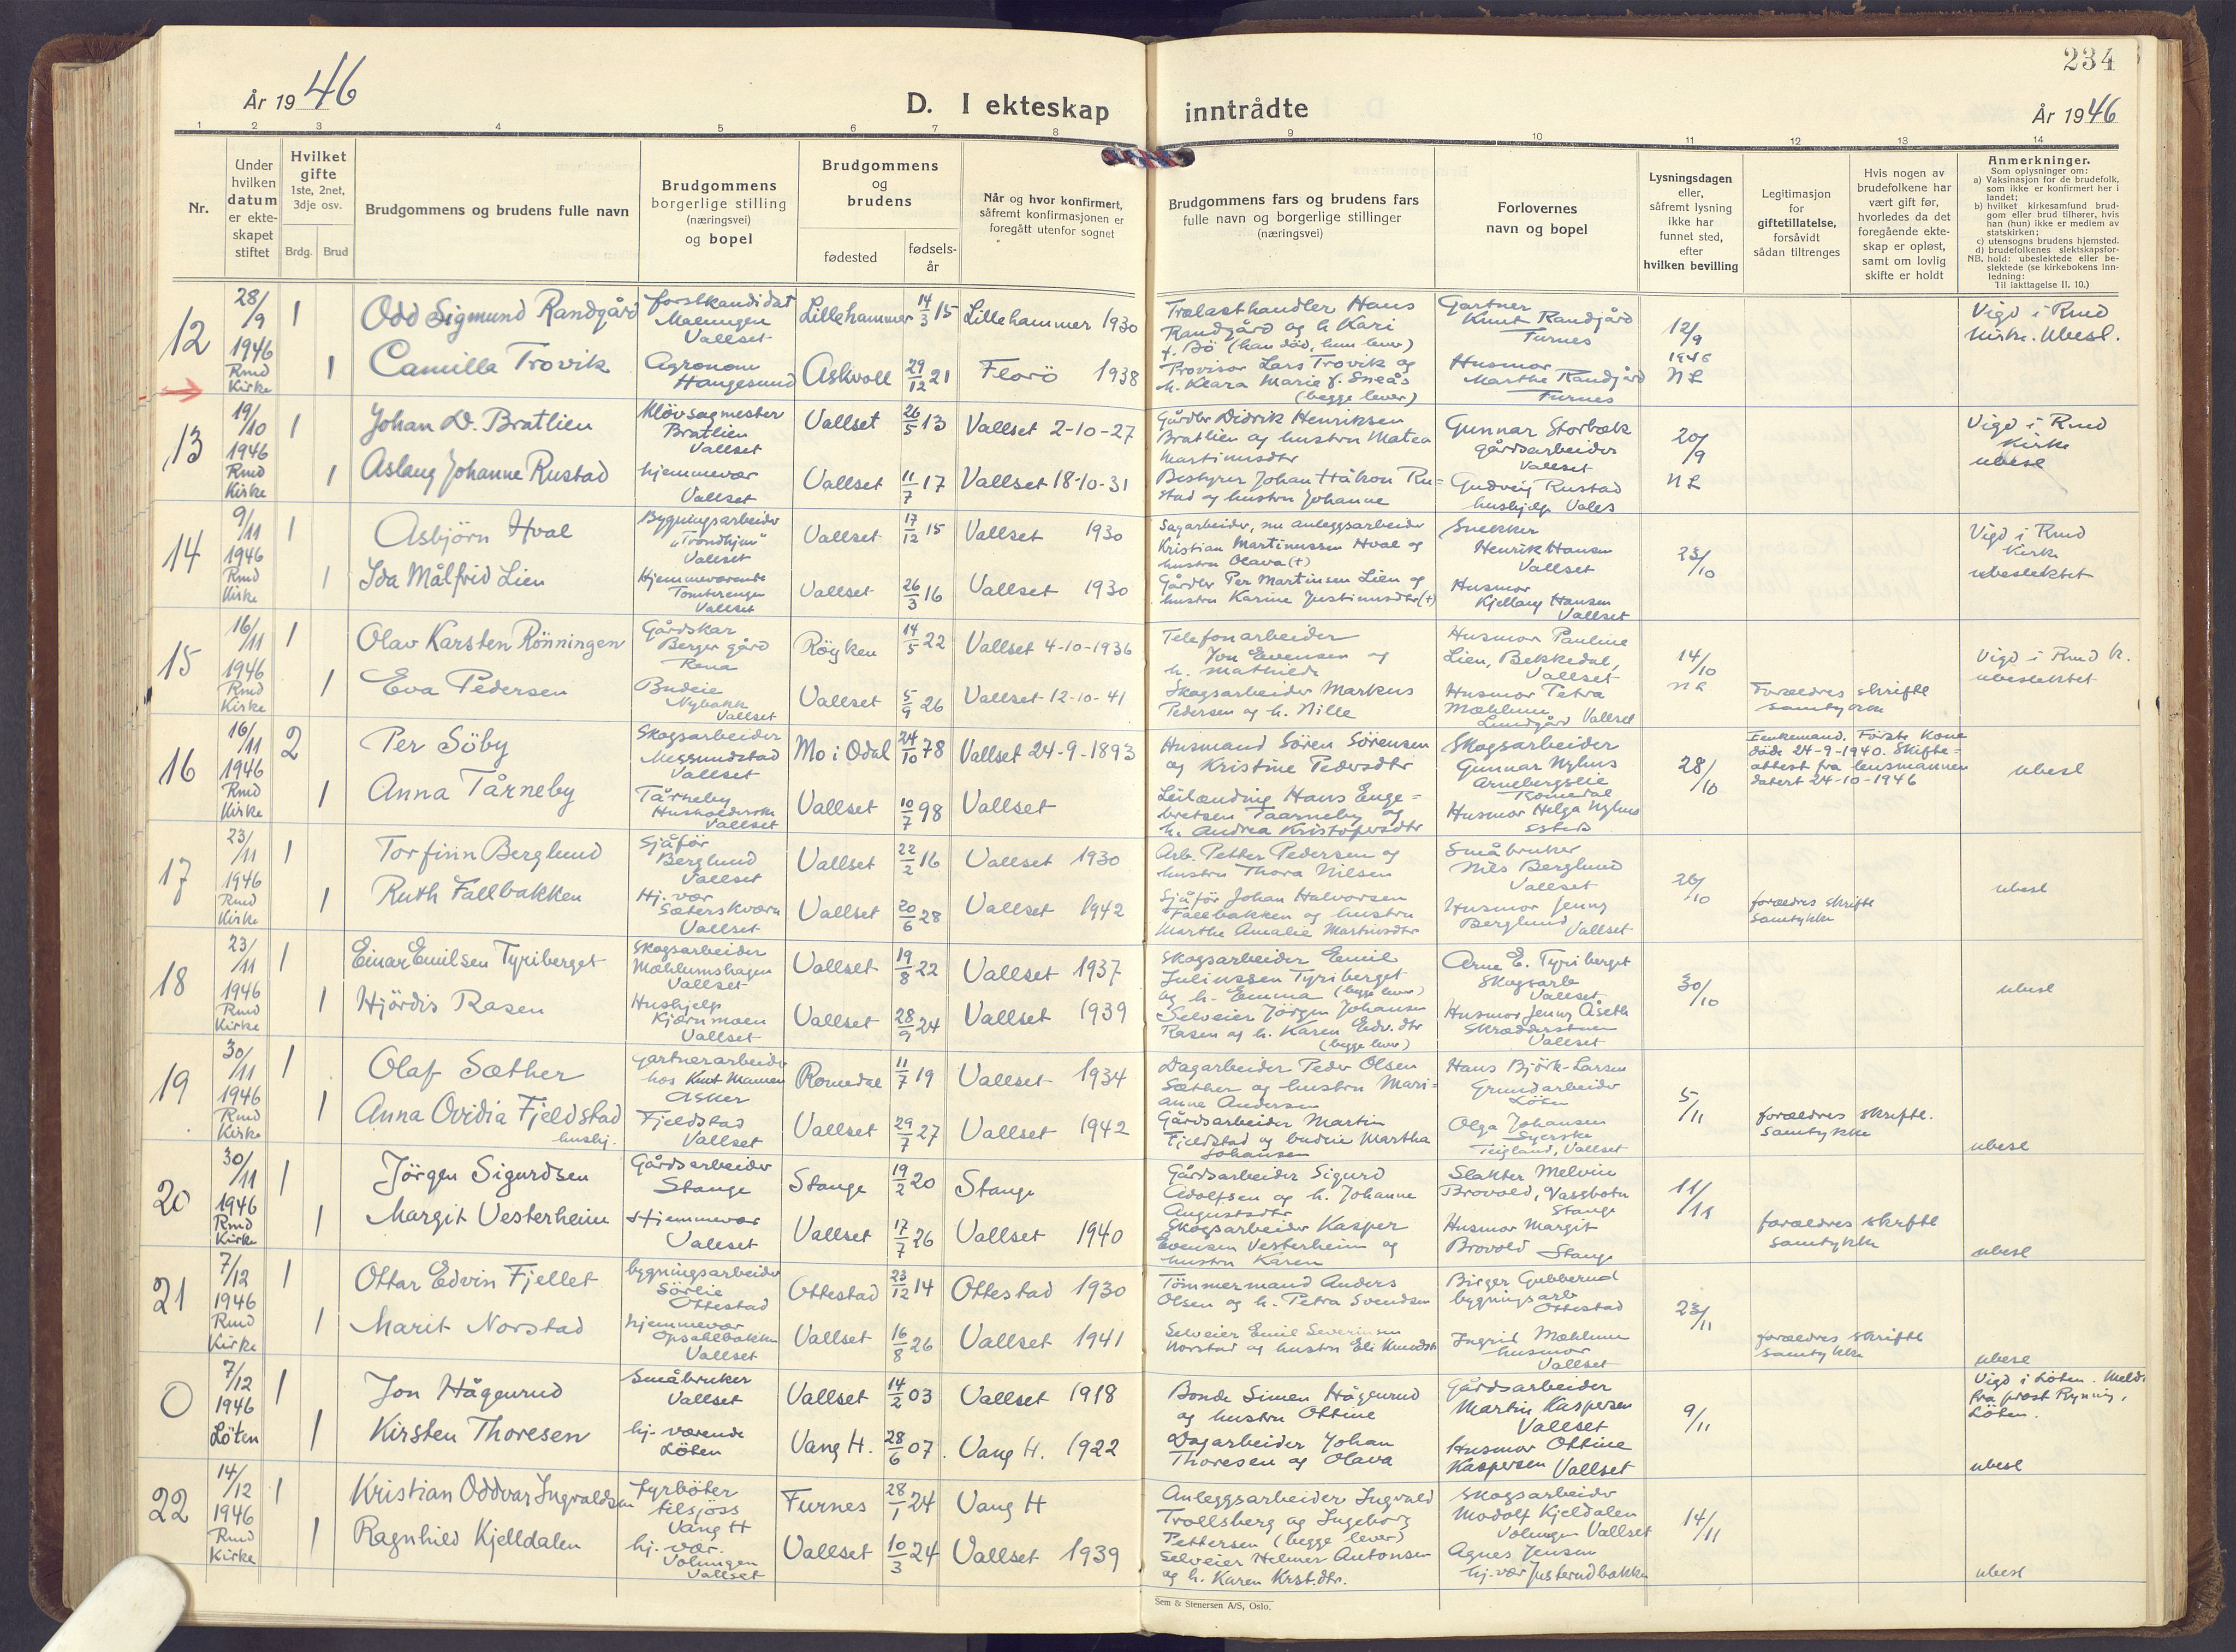 234
År 1946
D. I ekteskap inntrådte
År 1946
1 2 3 4 5 6 7 8 9 10 11 12 13 14
Nr.
Under
hvilken
datum
er ekte-
skapet
stiftet
Hvilket
gifte
1ste, 2net,
3dje osv.
Brdg. Brud
Brudgommens og brudens fulle navn
Brudgommens
borgerlige stilling
(næringsvei)
og bopel
Brudgommens
og
brudens
fødested
fødsels-
år
Når og hvor konfirmert,
såfremt konfirmasjonen er
foregått utenfor sognet
Brudgommens fars og brudens fars
fulle navn og borgerlige stillinger
(næringsvei)
Forlovernes
navn og bopel
Lysningsdagen
eller,
såfremt lysning
ikke har
funnet sted,
efter
hvilken bevilling
Legitimasjon
for
giftetillatelse,
forsåvidt
sådan tiltrenges
Hvis nogen av
brudefolkene har
vært gift før,
hvorledes da det
foregående ekte-
skap er opløst,
samt om lovlig
skifte er holdt
Anmerkninger.
Som oplysninger om:
a) Vaksinasjon for de brudefolk,
som ikke er konfirmert her i
landet;
b) hvilket kirkesamfund brud-
gom eller brud tilhører, hvis
han (hun) ikke er medlem av
statskirken;
c) utensogns brudens hjemsted.
d) brudefolkenes slektskapsfor-
NB. hold: ubeslektede eller be-
slektede (se kirkebokens inn-
ledning:
Til iakttagelse II. 10.)
12
28/9
1946
Rmd
Kirke
1
Odd Sigmund Randgård
forstkandidat
Malungen
Vallset
Lillehammer
14/3 15
Lillehammer 1930
Trelasthandler Hans
Randgård og h. Kari
f. Bö (han död, hun lever)
Gartner
Knut Randgård
Furnes
12/9
1946
NL
Vigd i Rmd
kirke. Ubesl.
1
Camilla Trovik
Agronom
Haugesund
Askvoll
29/12 21
Florö 1938
Provisor Lars Trovik og
h. Klara Marie f. Sneås
(begge lever)
Husmor
Marthe Randgård
Furnes
13
19/10
1946
Rmd
Kirke
1
Johan D. Bratlien
Klövsagmester
Bratlien
Vallset
Vallset
26/5 13
Vallset 2-10-27
Gårdbr Didrik Henriksen
Bratlien og hustru Matea
Martinusdtr
Gunnar Storbæk
gårdsarbeider
Vallset
20/9
NL
Vigd i Rmd
Kirke
ubesl
1
Aslaug Johanne Rustad
hjemmevær
Vallset
Vallset
11/7 17
Vallset 18-10-31
Bestyrer Johan Håkon Ru=
stad og hustru Johanne
Gudveig Rustad
hushjelp Vals
14
9/11
1946
Rmd
Kirke
1
Asbjörn Hval
Bygningsarbeider
"Trondhjem"
Vallset
Vallset
17/12 15
Vallset 1930
Sagarbeider, nu anleggsarbeider
Kristian Martinussen Hval og
hustru Olava (†)
Snekker
Henrik Hansen
Vallset
23/10
Vigd i Rmd
Kirke
ubeslektet
1
Ida Målfrid Lien
Hjemmeværende
Tomterengen
Vallset
Vallset
26/3 16
Vallset 1930
Gårdbr Per Martinsen Lien og
hustru Karine Justinusdtr (†)
Husmor
Kjellaug Hansen
Vallset
15
16/11
1946
Rmd
Kirke
1
Olav Karsten Rönningen
Gårdskar
Berger gård
Rena
Röyken
14/5 22
Vallset 4-10-1936
Telefonarbeider
Jon Evensen og
h. Mathilde
Husmor Pauline
Lien, Bekkedal,
Vallset
14/10
NL
Vigd i Rmd k.
ubeslektet
1
Eva Pedersen
Budeie
Nybakk
Vallset
Vallset
5/9 26
Vallset 12-10-41
Skogsarbeider Markus
Pedersen og h. Nille
Husmor Petra
Mæhlum
Lundgård Vallset
Foreldres skriftl
samtykke
16
16/11
1946
Rmd
Kirke
2
Per Söby
Skogsarbeider
Megrundstad
Vallset
Mo i Odal
24/10 78
Vallset 24-9-1893
Husmand Sören Sörensen
og Kristine Pedersdtr
Skogsarbeider
Gunnar Nyhus
Arnebergseie
Romedal
28/10
Enkemand. Første kone
döde 24-9-1940. Skifte=
attest fra lensmannen
datert 24-10-1946
ubesl
1
Anna Tårneby
Tårneby
Husholderske
Vallset
Vallset
10/7 98
Vallset
Leilænding Hans Enge=
bretsen Taarneby og
h. Andrea Kristofersdtr
Husmor Helga Nyhus
17
23/11
1946
Rmd
Kirke
1
Torfinn Berglund
Sjåför
Berglund
Vallset
Vallset
22/2 16
Vallset 1930
Arb. Petter Pedersen og
hustru Thora Nilsen
Småbruker
Nils Berglund
Vallset
26/10
ubesl
1
Ruth Fallbakken
Hj. vær
Sæterskværn
Vallset
Vallset
20/6 28
Vallset 1942
Sjåför Johan Halvorsen
Fallbakken og hustru
Marthe Amalie Martinsdtr
Husmor Jenny
Berglund Vallset
foreldres skriftl
samtykke
18
23/11
1946
Rmd
Kirke
1
Einar Emilsen Tyriberget
Skogsarbeider
Mæhlumshagen
Vallset
Vallset
19/8 22
Vallset 1937
Skogsarbeider Emil
Juliussen Tyriberget
og h. Emma (begge lever)
Arne E. Tyriberget
Skogsarb
Vallset
30/10
ubesl
1
Hjördis Rasen
Hushjelp
Kjernmoen
Vallset
Vallset
28/9 24
Vallset 1939
Selveier Jörgen Johansen
Rasen og h. Karen Edv.dtr
(begge lever)
Husmor Jenny Åseth
Skrædderstuen
Vallset
19
30/11
1946
Rmd
Kirke
1
Olaf Sæther
Gartnerarbeider
hos Knut Mamen
Asker
Romedal
11/7 19
Vallset 1934
Dagarbeider Peder Olsen
Sæther og hustru Mari=
anne Andersen
Hans Björk-Larsen
Grundarbeider
Löten
5/11
1
Anna Ovidia Fjeldstad
hushj.
Fjeldstad
Vallset
Vallset
29/7 27
Vallset 1942
Gårdsarbeider Martin
Fjeldstad og budeie Martha
Johansen
Olga Johansen
Syerske
Teigland, Vallset
foreldres skriftl.
samtykke
ubesl
20
30/11
1946
Rmd
Kirke
1
Jörgen Sigurdsen
Gårdsarbeider
Stange
Stange
19/2 20
Stange
Gårdsarbeider Sigurd
Adolfsen og h. Johanne
Augustsdtr
Slakter Melvin
Brovold, Vassbotn
Stange
11/11
1
Margit Vesterheim
Hjemmevær
Vallset
Vallset
17/7 26
Vallset 1940
Skogsarbeider Kasper
Evensen Vesterheim og
hustru Karen
Husmor Margit
Brovold Stange
foreldres skriftl
samtykke
ubesl
21
7/12
1946
Rmd
Kirke
1
Ottar Edvin Fjellet
bygningsarbeider
Sörlie
Ottestad
Ottestad
23/12 14
Ottestad 1930
Tömmermand Anders
Olsen og h. Petra Svendsen
Birger Gubberud
bygningsarb
Ottestad
23/11
1
Marit Norstad
hjemmevær
Opsahlbakken
Vallset
Vallset
16/8 26
Vallset 1941
Selveier Emil Severinsen
Norstad og hustru Eli Knudsdtr
Ingrid Mæhlum
husmor
Vallset
foreldres skriftl
samtykke
ubesl
0
7/12
1946
Löten
1
Jon Hågenrud
Småbruker
Vallset
Vallset
14/2 03
Vallset 1918
Bonde Simen Hågenrud
og hustru Ottine
Gårdsarbeider
Martin Kaspersen
Vallset
9/11
Vigd i Löten. Meldt
fra prost Rynning,
Löten.
1
Kirsten Thoresen
hj. værende
Löten
Vang H.
28/6 07.
Vang H. 1922
Dagarbeider Johan
Thoresen og Olava
Husmor Ottine
Kaspersen Vallset
ubesl
22
14/12
1946
Rmd
Kirke
1
Kristian Oddvar Ingvaldsen
Fyrböter
tilsjöss
Vang H
Furnes
28/1 24
Vang H
Anleggsarbeider Ingvald
Trollsberg og Ingeborg
Pettersen (begge lever)
Skogsarbeider
Modolf Kjeldalen
Volungen Vallset
14/11
1
Ragnhild Kjelldalen
hj. vær.
Volungen
Vallset
Vallset
10/3 24
Vallset 1939
Selveier Helmer Antonsen
og h. Karen Krst.dtr.
Agnes Jensen
hj. vær Justerudbakken
ubesl
Sem & Stenersen A/S, Oslo.